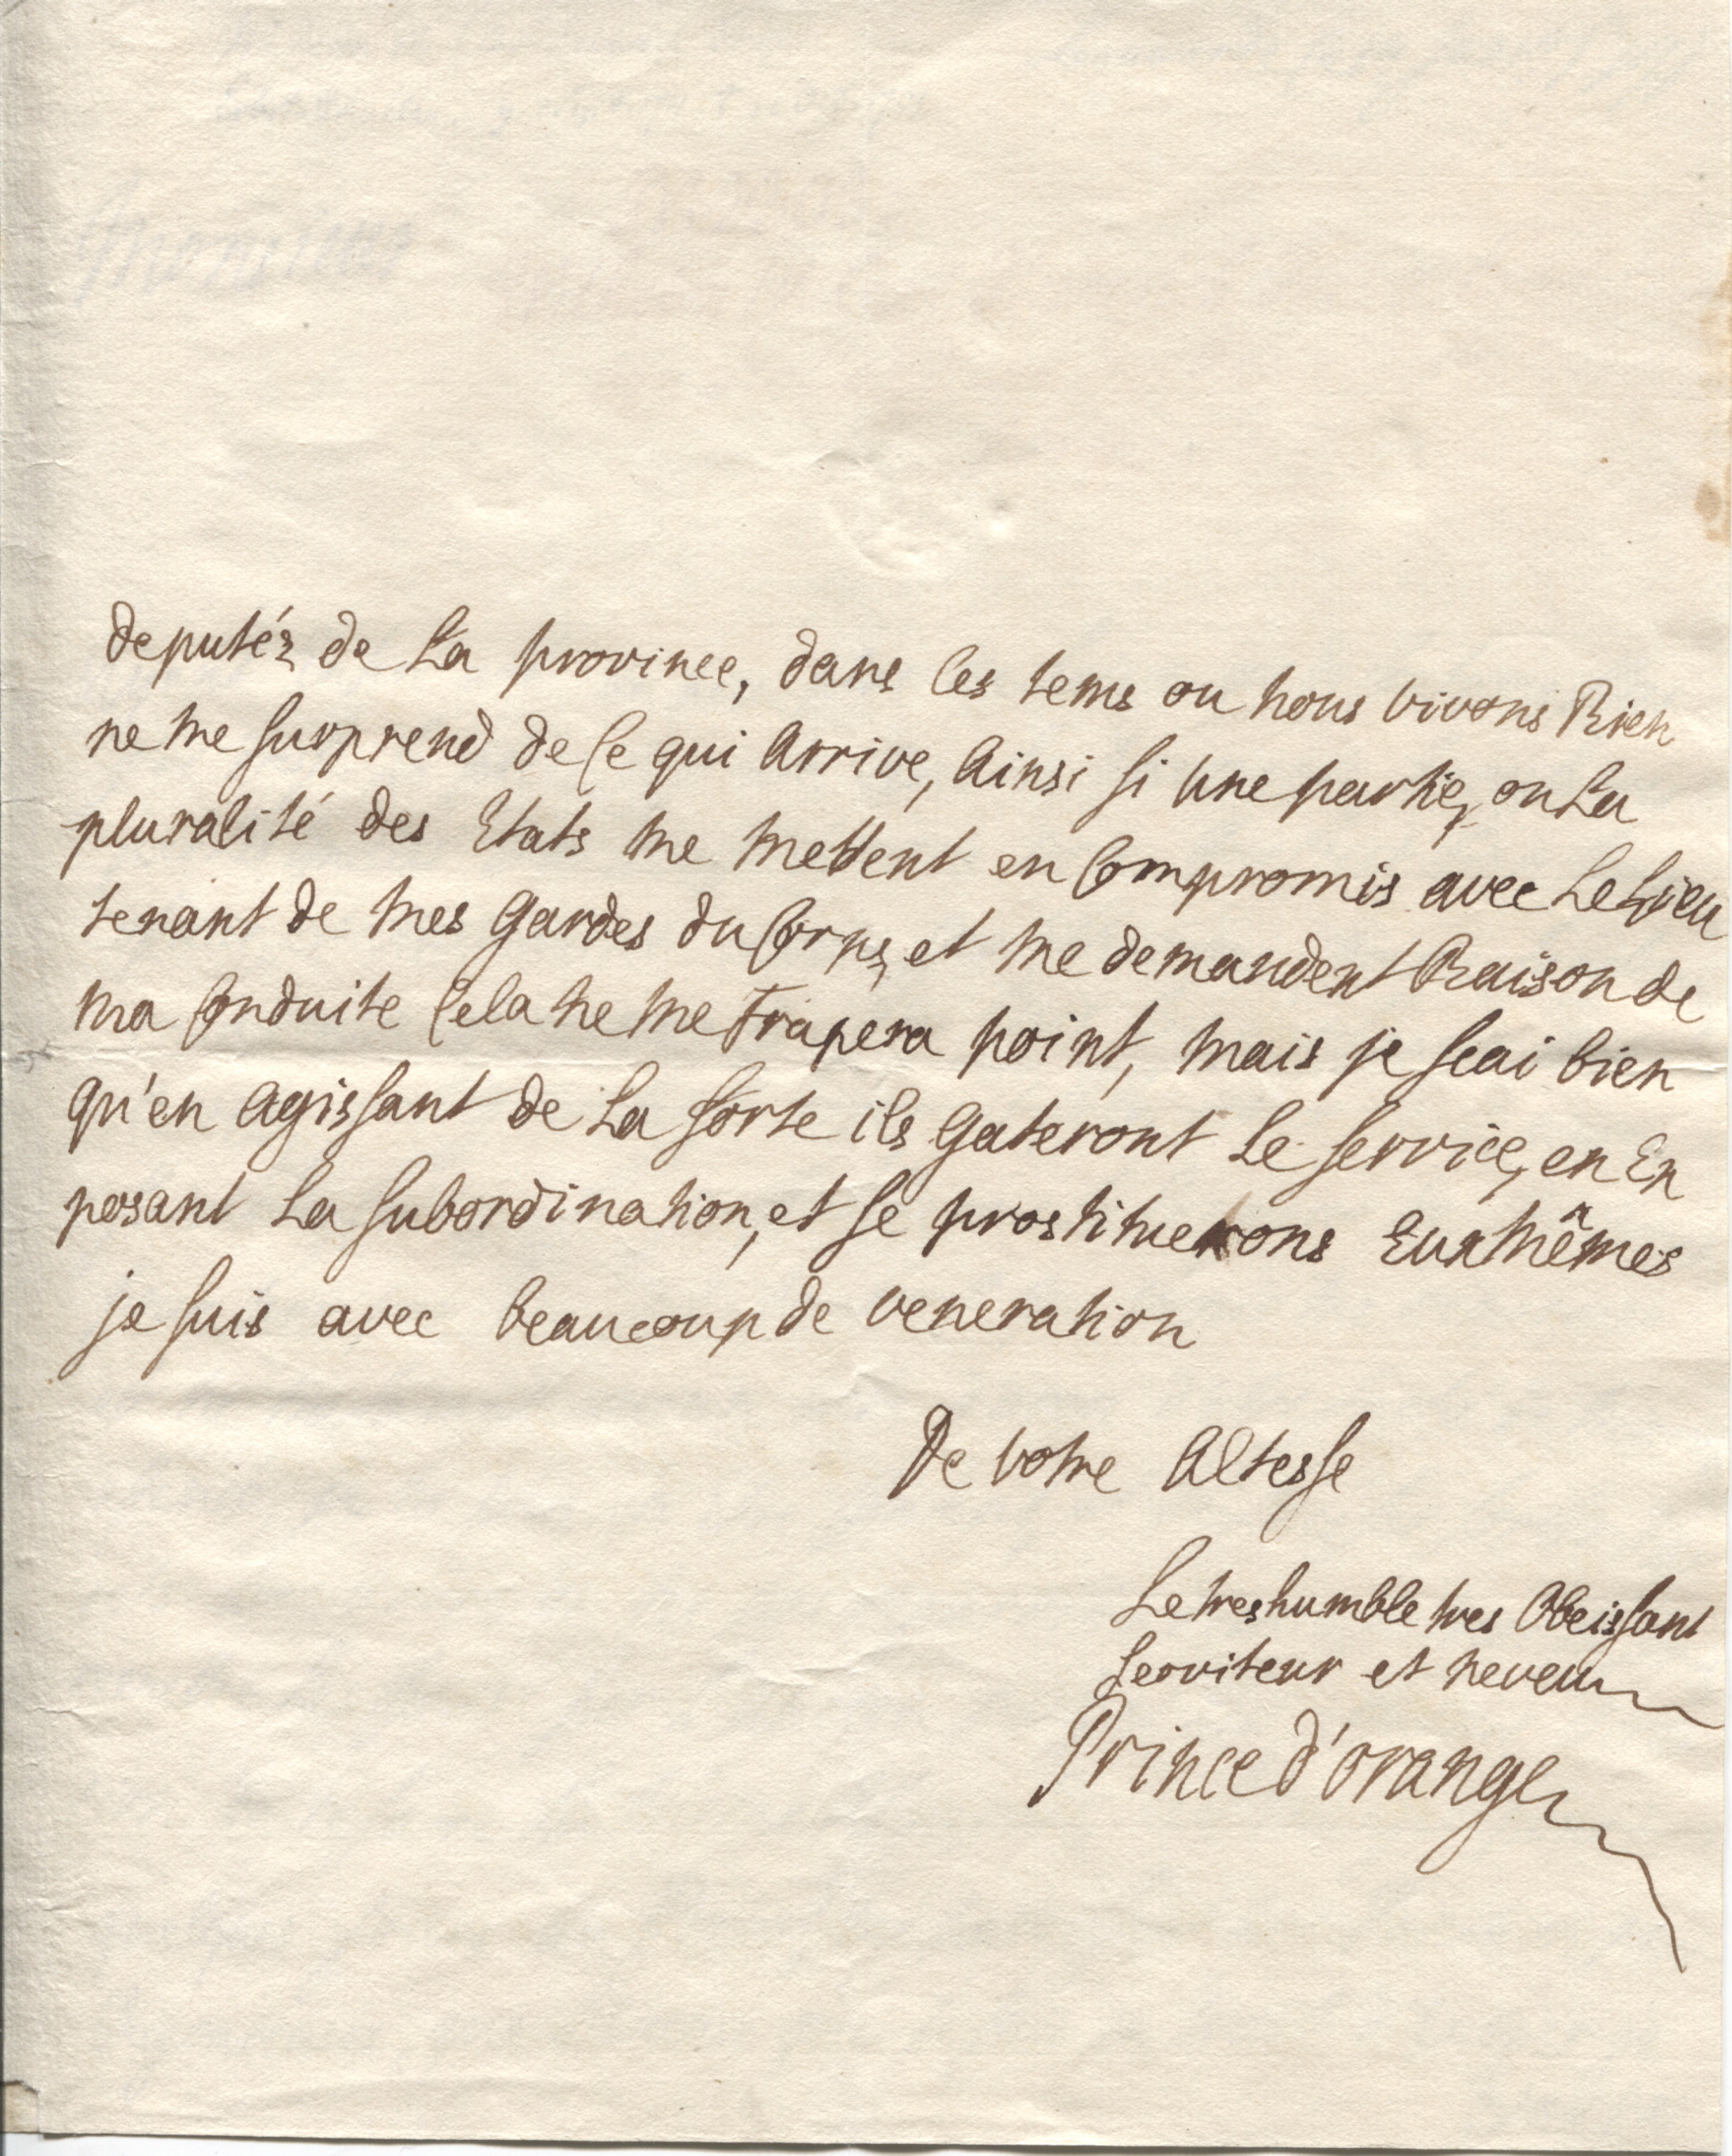 deputéz de La province, dans les tems ou nous vivons Rien
ne me surprend de Ce qui Arrive, Ainsi si une partie, ou La
pluralité des Etats me mettent en Compromis avec Le Lieu
tenant de mes Gardes du Corps, et me demandent Raison de
ma Conduite Cela ne me Frapera point, mais je scai bien
qu'en Agissant de La sorte ils Gateront Le service, en Ex
posant La subordination, et se prostituerons Eux mêmes
je suis avec beaucoup de veneration
De votre Altesse
Le tres humble tres Obeissant
serviteur et neveu
Prince d'orange